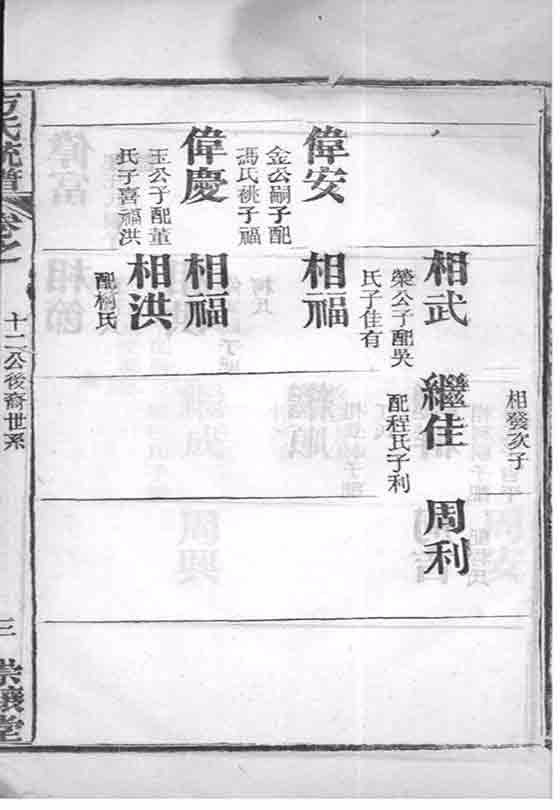 相發次子
相武
榮公子配吳
氏子佳有
繼佳
配程氏子利
周利
偉安
金公嗣子配
馮氏祧子福
相福
偉慶
玉公子配董
氏子喜福洪
相福
相洪
配柯氏
方氏統譜
卷之
十二公後裔世系
三
崇讓堂